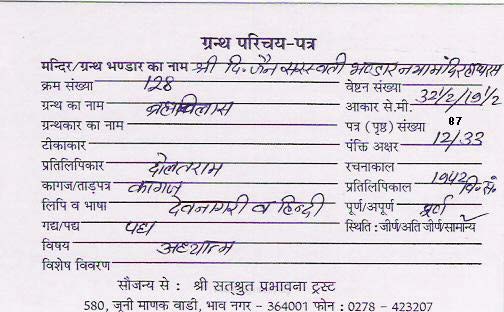 ग्रन्थ परिचय-पत्र
मन्दिर/ग्रन्थ भण्डार का नाम श्री दि. जैन सरस्वती भण्डार नया मंदिर
क्रम संख्या 128 वेष्टन संख्या
ग्रन्थ का नाम ब्रह्मविलास आकार से.मी. 32 1/2/19 1/2
ग्रन्थकार का नाम पत्र (पृष्ठ) संख्या 87
टीकाकार पंक्ति अक्षर 12/33
प्रतिलिपिकार दौलतराम रचनाकाल
कागज/ताड़पत्र कागज प्रतिलिपिकाल 1942 वि.सं.
लिपि व भाषा देवनागरी व हिन्दी पूर्ण/अपूर्ण पूर्ण
गद्य/पद्य पद्य स्थिति : जीर्ण/अति जीर्ण/सामान्य
विषय अध्यात्म
विशेष विवरण
सौजन्य से : श्री सत्श्रुत प्रभावना ट्रस्ट
580, जूनी माणक वाडी, भाव नगर - 364001 फोन : 0278 - 423207